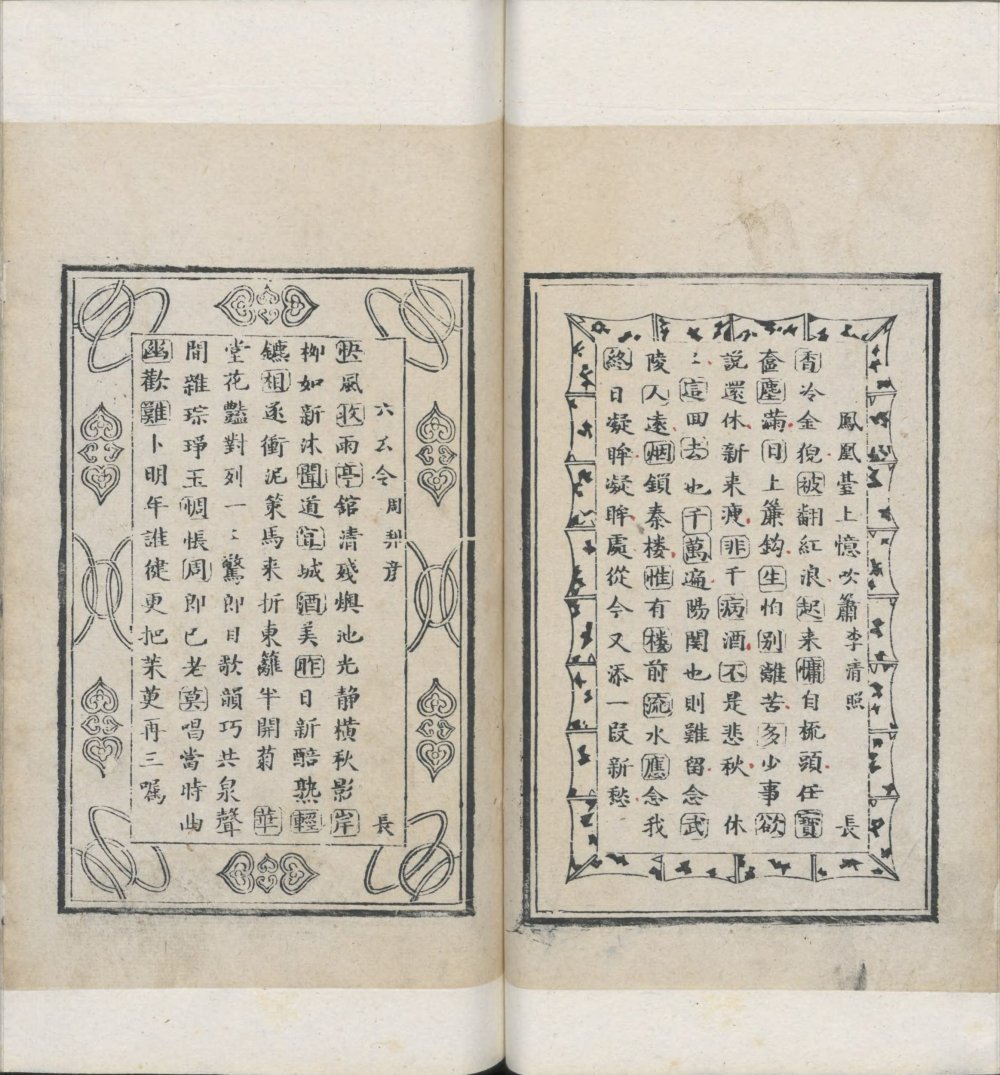 鳳凰臺上憶吹簫 李清照 長
香冷金猊被翻紅浪起来慵自梳頭任寶
奩塵滿日上簾鈎生怕别離苦多少事欲
說還休新来瘦非干病酒不是悲秋 休
〻這回去也千萬遍陽関也則難留念武
陵人遠烟鎖秦楼惟有楼前流水應念我
終日凝眸凝眸處從今又添一段新愁
六幺令 周邦彦 長
快風收雨亭舘清殘燠池光静横秋影岸
柳如新沐聞道宜城酒美昨日新醅熟輕
鑣相逐衝泥策馬来折東籬半開菊 華
堂花豔對列一〻驚郎目歌韻巧共泉聲
間雜琮琤玉惆悵周郎已老莫唱當時曲
幽歡難卜明年誰健更把茱萸再三嘱